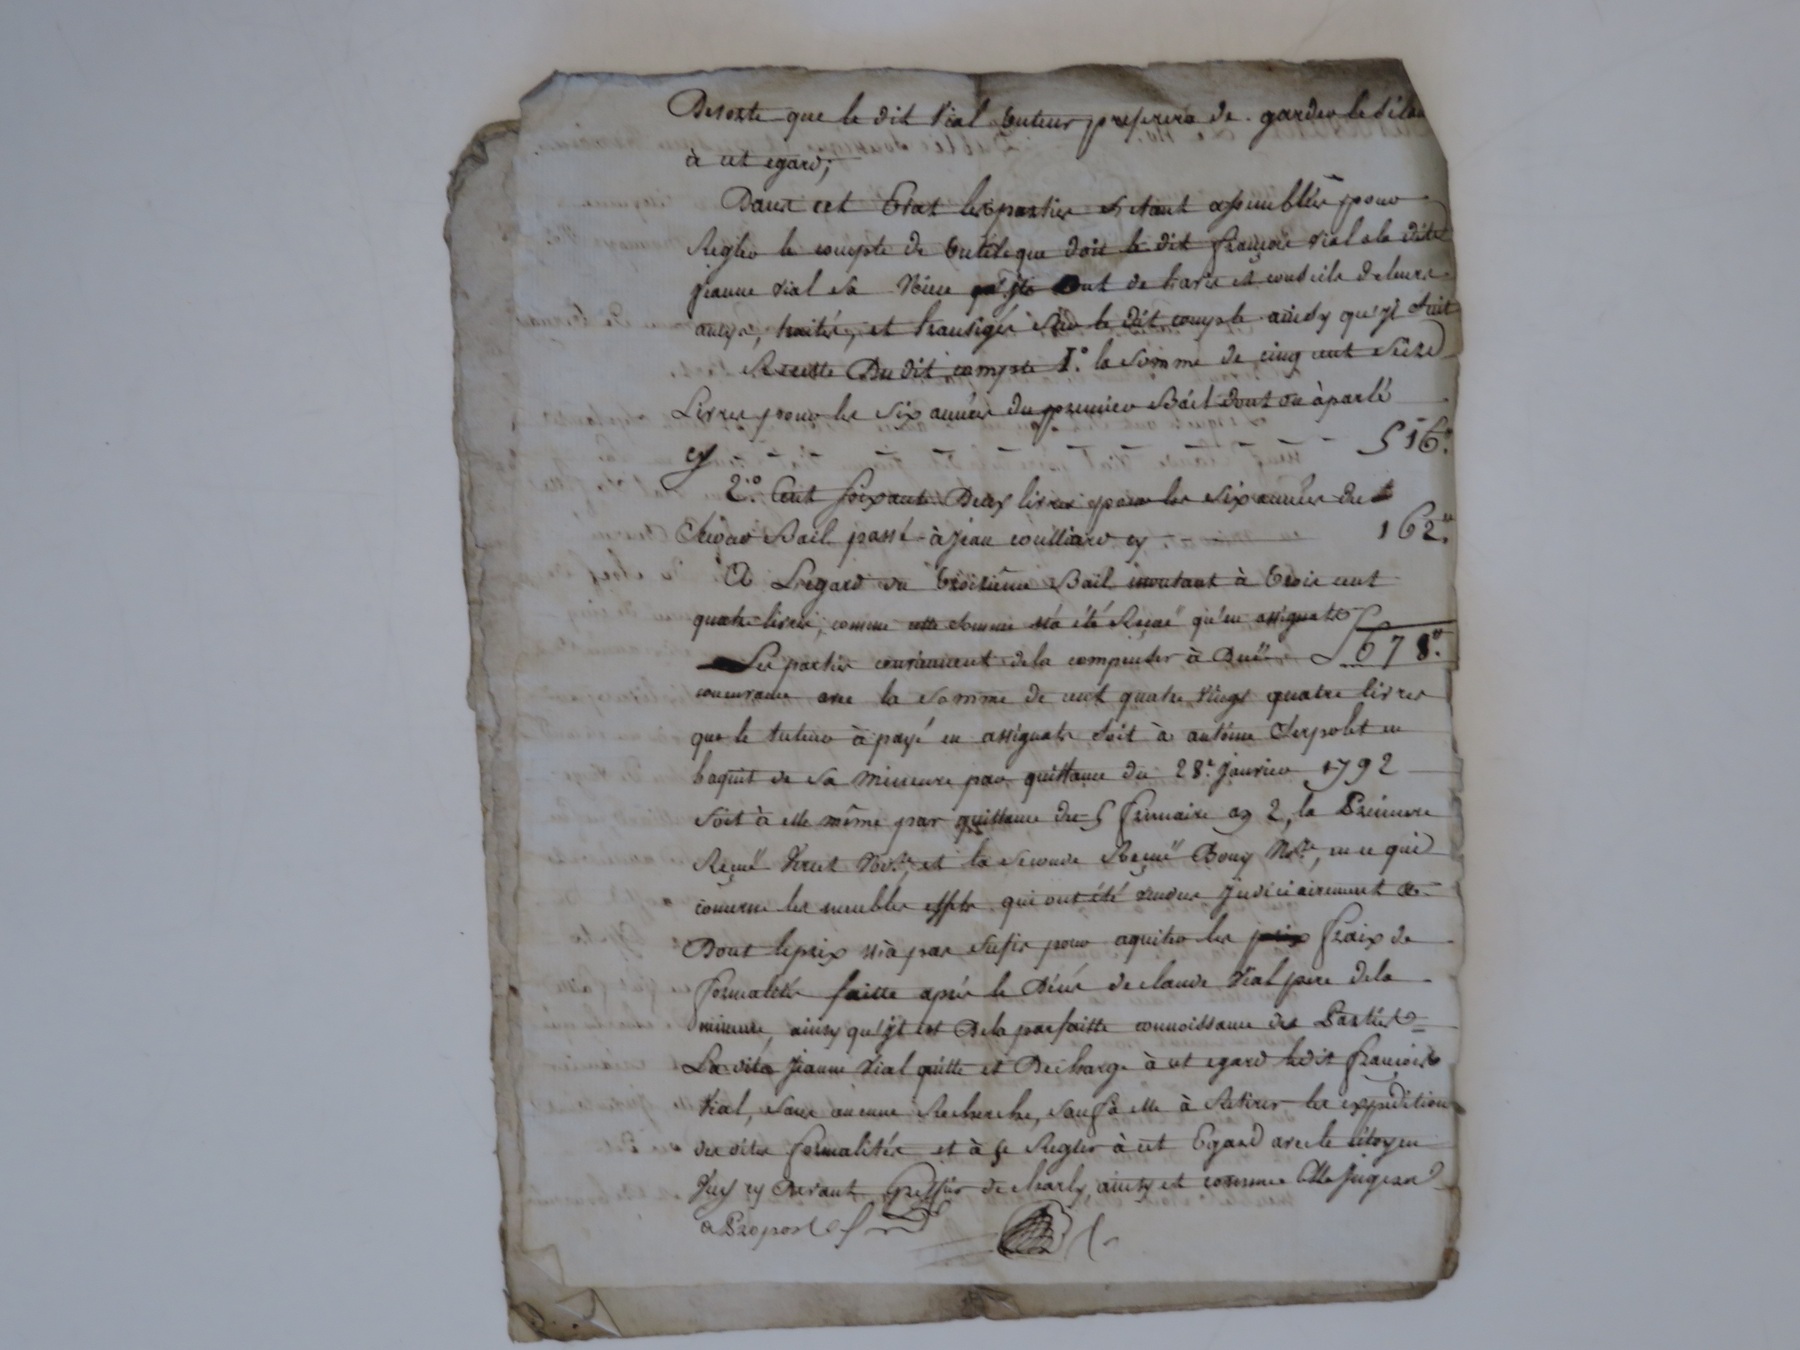 Desorte que le dit Vial tuteur preferera de garder le silen
à cet egard;
Dans cet Etat les parties s'etant assemblées pour
Regler le compte de tutele que doit le dit françois Vial a la dite
jeanne Vial sa Niece ont de l'avis et conseils de leurs
amys, traités, et transigés sur le dit compte ainsy qu'yl suit
Recette Du dit compte 1.° la somme de cinq cent seize
Livres pour les six années du premier Bail dont on à parlé
cy - - - - - - - - - 516.#
2.° Cent soixante Deux livres pour les six années du
second Bail passé à jean couilliard cy - - 162.#
A L'egard du troisième Bail montant à trois cent
quatre livres, comme cette somme n'a été Reçue qu'en assignats
678.#
Les parties conviennent de la compenser à Due
concurrance avec la somme de cent quatre vings quatre livres
que le tuteur à payé en assignats soit à antoine Serpolet en
l'aquit de sa mineure par quittance du 28.e janvier 1792
soit à elle même par quittance du 5 frimaire an 2, la Premiere
Reçue Not.re et la seconde Reçue Bouy Not.re, en ce qui
concerne les meubles effets qui ont été vendus judiciairement &
Dont le prix n'à pas sufis pour aquiter les fraix de
formalités faitte après le Décés de claude Vial pere de la
mineure, ainsy qu'yl est De la parfaitte connoissance des Parties
La dite jeanne Vial quitte et Décharge à cet egard ledit françois
Vial, sans aucune Recherche, sauf à elle à Retirer les expedition
des dites formalités et à se Regler à cet Egard avec le citoyen
cy devant Greffier de charly, ainsy et comme Elle jugera
a Propos